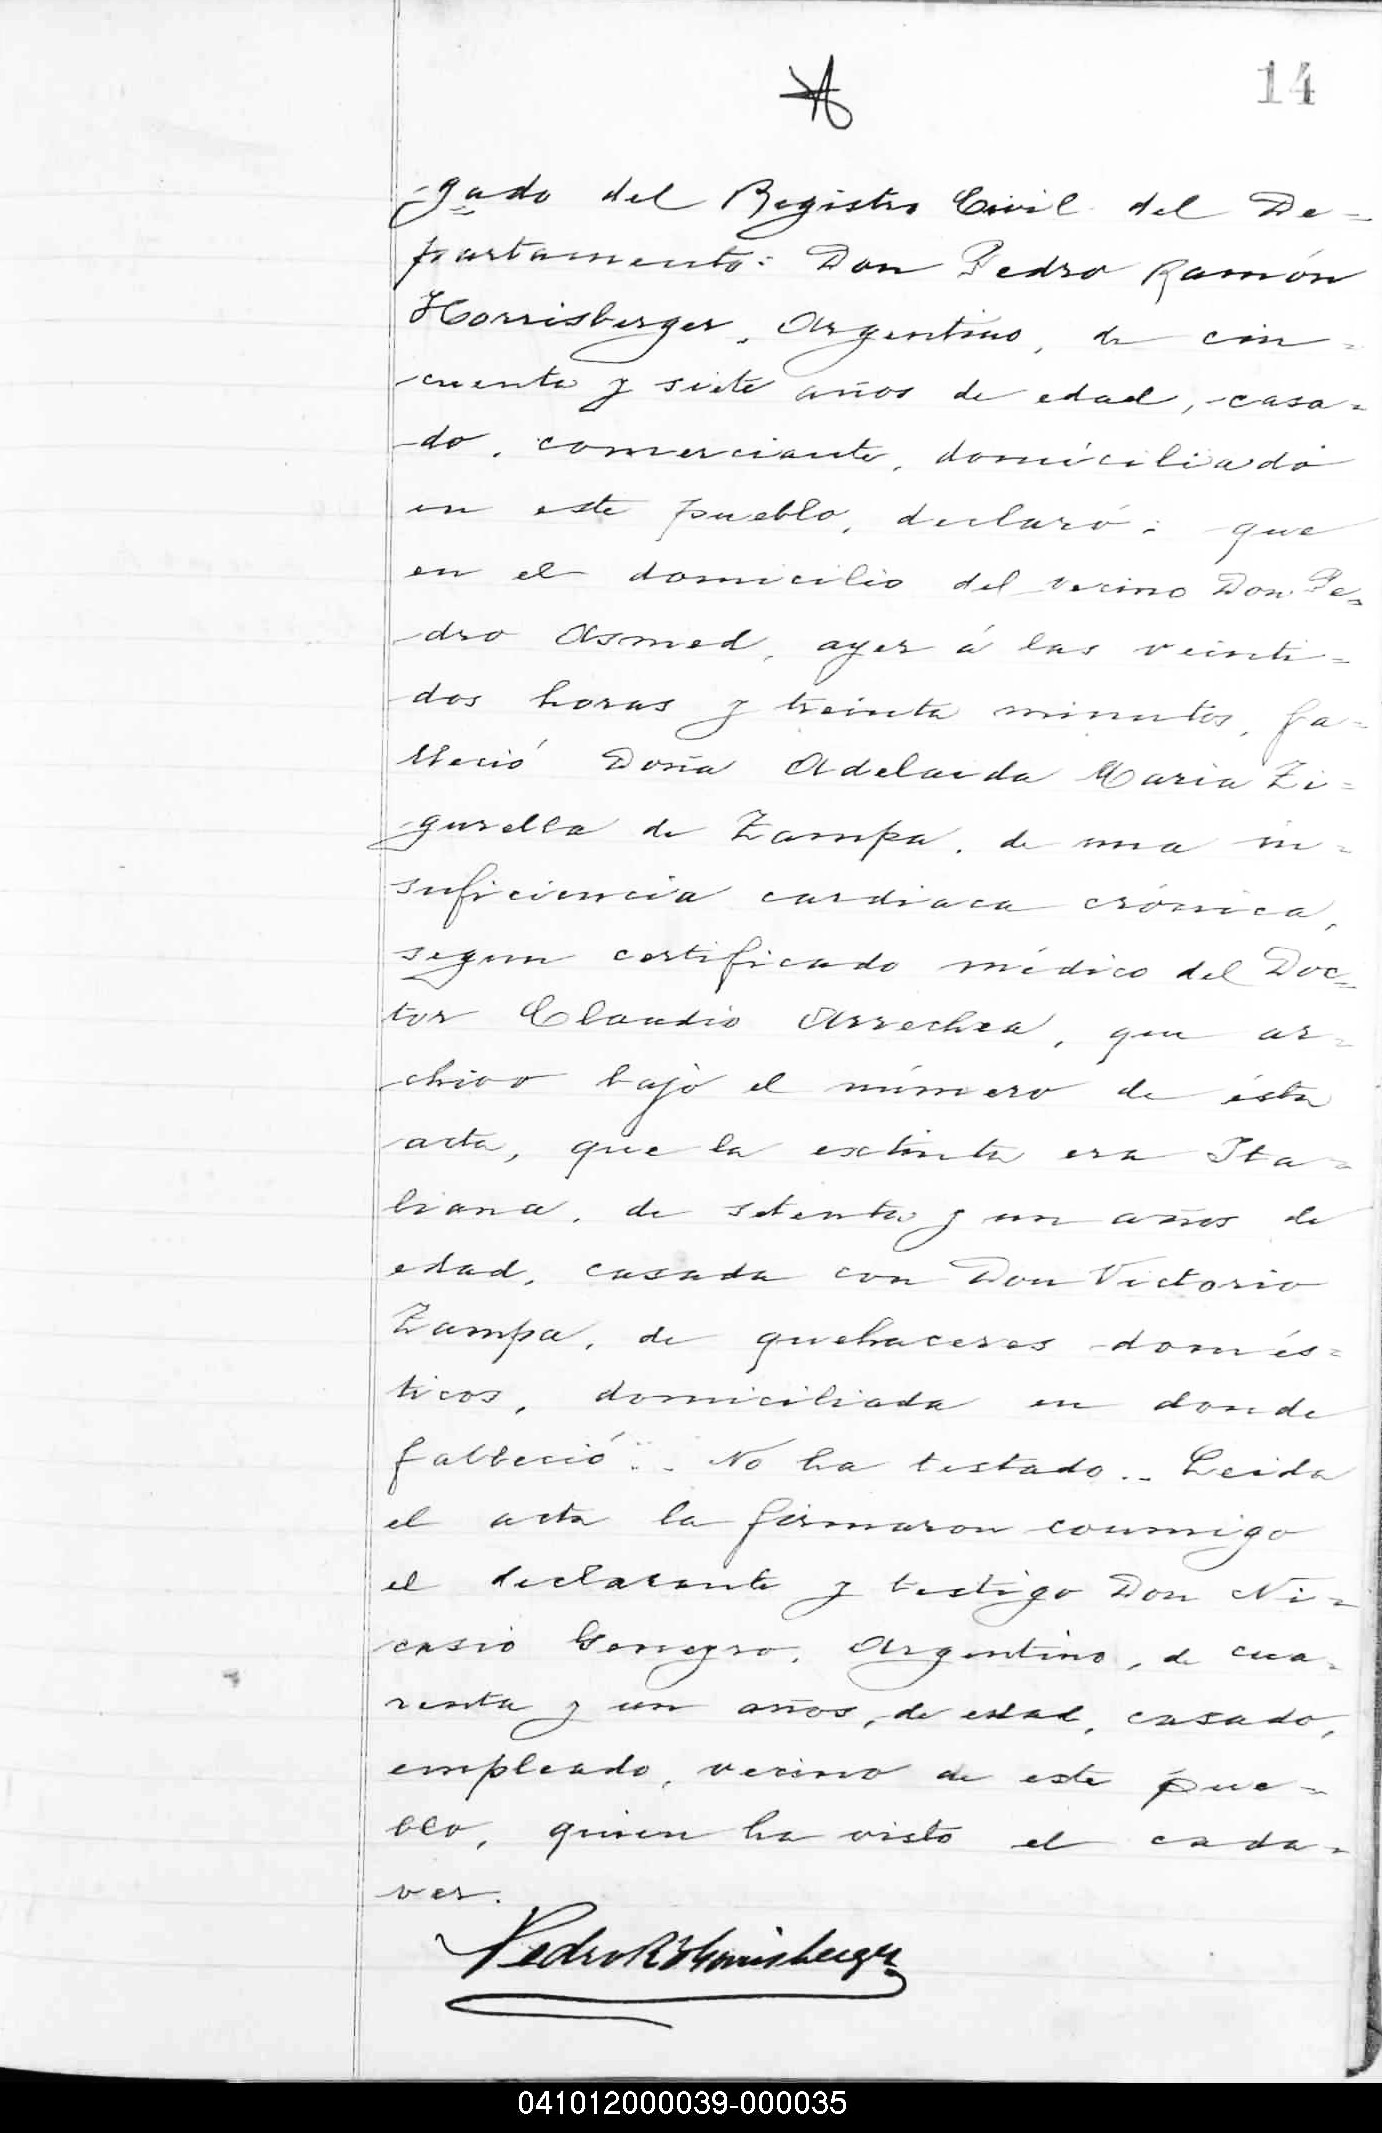 14
-gado del Registro Civil del De-
partamento: Don Pedro Ramón
Horrisberger, Argentino, de cin-
cuenta y siete años de edad, casa-
do, comerciante, domiciliado
en este pueblo, declaró: que
en el domicilio del vecino Don Pe-
dro Asmed, ayer á las veinti-
dos horas y treinta minutos, fa-
lleció Doña Adelaida Maria Zi-
gurella de Zampa, de una in-
suficiencia cardiaca crónica,
segun certificado médico del Doc-
tor Claudio Arrechea, que ar-
chivo bajo el número de ésta
acta, que la extinta era Ita-
liana, de setenta y un años de
edad, casada con Don Victorio
Zampa, de quehaceres domés-
ticos, domiciliada en donde
falleció.. No ha testado.. Leida
el acta la firmaron conmigo
el declarante y testigo Don Ni-
casio Goneyro, Argentino, de cua-
renta y un años, de edad, casado,
empleado, vecino de este pue-
blo, quien ha visto el cada-
ver.
Pedro R Horrisberger
041012000039-000035